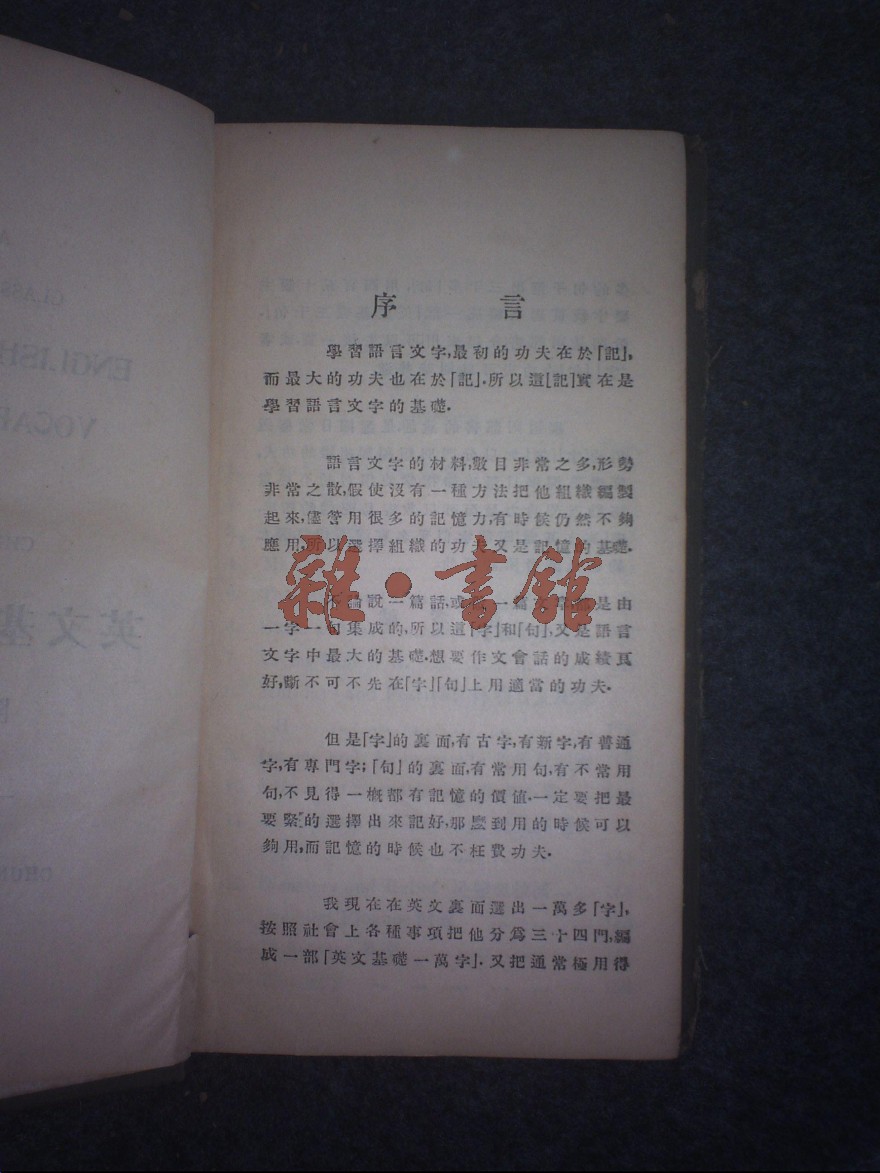 序言
學習語言文字,最初的功夫在於「記」,
而最大的功夫也在於「記」.所以這「記」實在是
學習語言文字的基礎.
語言文字的材料,數目非常之多,形勢
非常之散,假使沒有一種方法把他組織編製
起來,儘管用很多的記憶力,有時候仍然不夠
應用,所以選擇組織的功夫又是記憶的基礎.
雜·書館
不論說一篇話,或 一篇 是由
一字一句集成的,所以這「字」和「句」,又是語言
文字中最大的基礎.想要作文會話的成績真
好,斷不可不先在「字」「句」上用適當的功夫.
但是「字」的裏面,有古字,有新字,有普通
字,有專門字;「句」的裏面,有常用句,有不常用
句,不見得一概都有記憶的價值.一定要把最
要緊的選擇出來記好,那麼到用的時候可以
夠用,而記憶的時候也不枉費功夫.
我現在在英文裏面選出一萬多「字」,
按照社會上各種事項把他分爲三十四門,編
成一部「英文基礎一萬字」.又把通常極用得